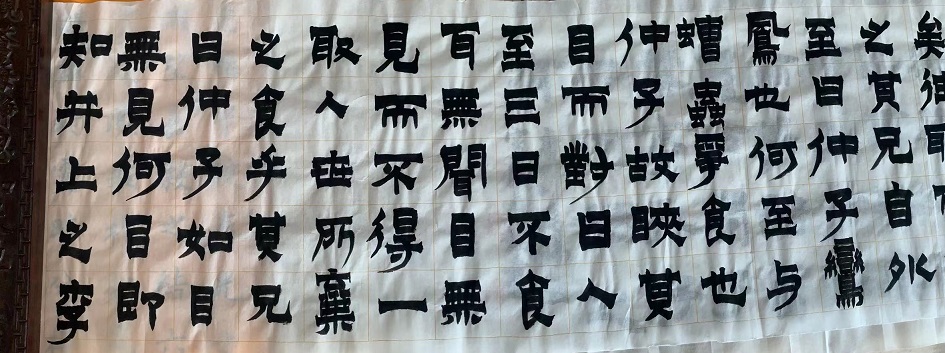 矣
之其兄自外
至曰仲子鸞
鳳也何至与
螬蟲食也
仲子故其
目而對曰人
至三日不食
耳無聞目無
見而不得一
取人世所棄
之食乎其兄
曰仲子如目
無見何目即
知井上之李